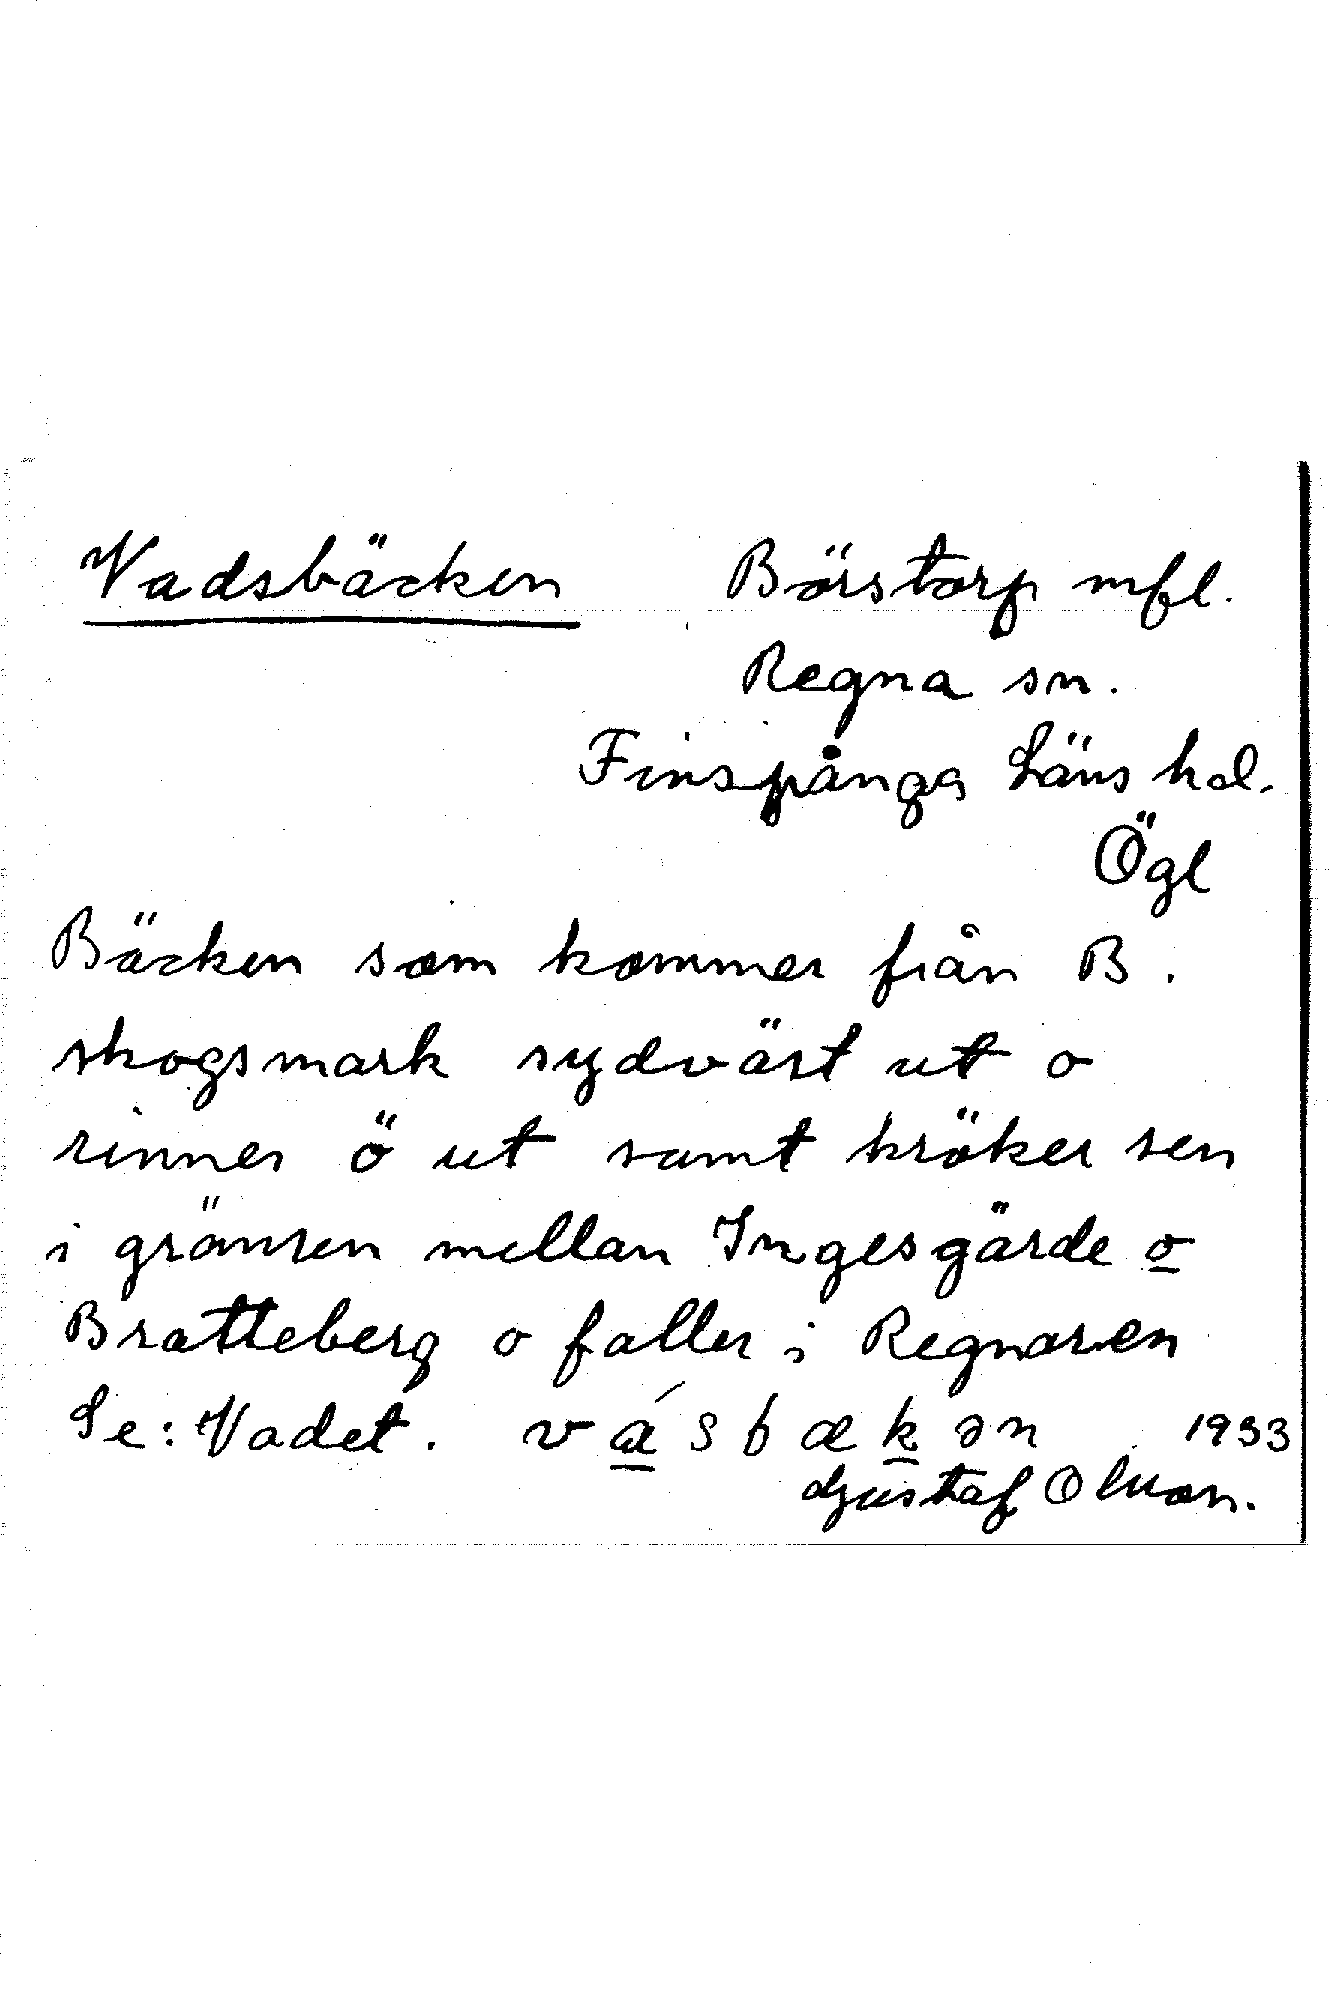 Vadsbäcken Börstorp mfl.
Regna sn.
Finspånga Läns hd.
Ögl
Bäcken som kommer från B.
skogsmark sydväst ut o
rinner ö ut samt kröker sen
i gränsen mellan Ingesgärde o
Bratteberg o faller i Regnaren
Se: Vadet. vásbækən 1933
Gustaf Olsson.